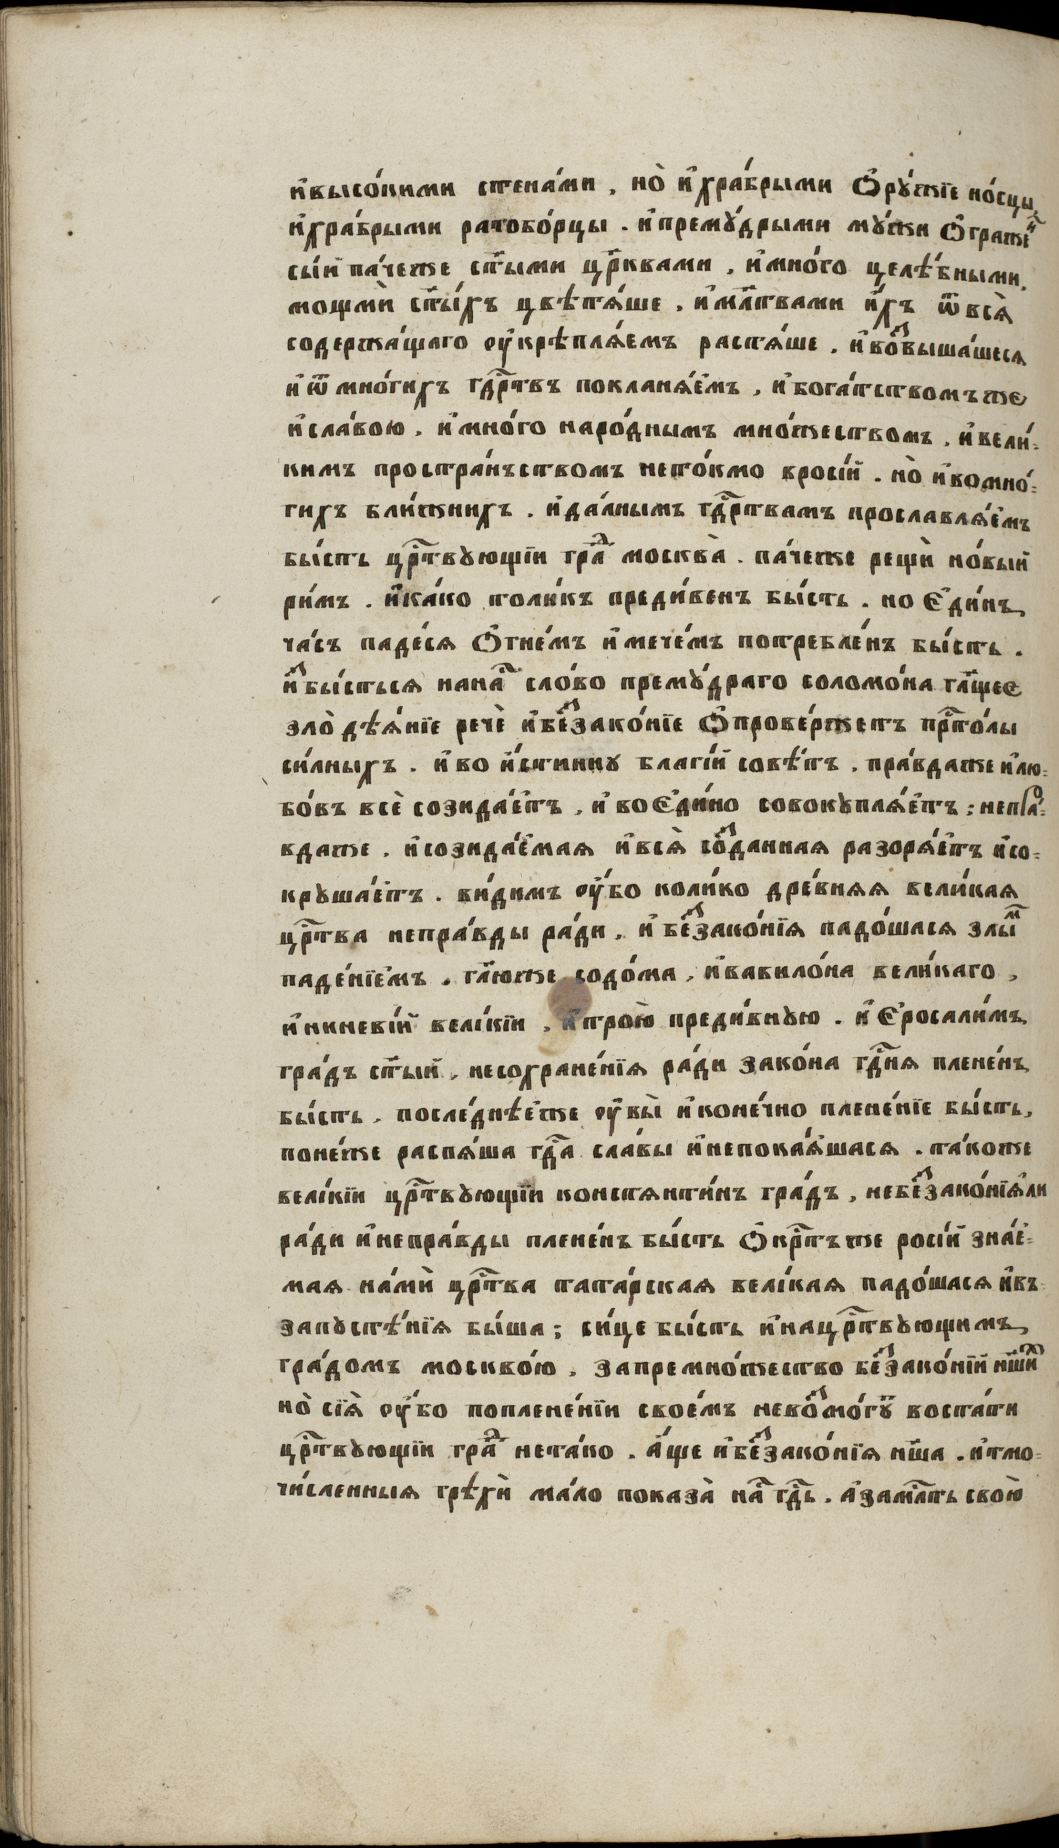 и҆высо́кими стена́ми , но̀ и҆хра́брыми Ѻ҆рꙋ́жїе но́сцы
и҆хра́брыми ратобо́рцы . и҆премꙋ́дрыми мꙋ́жи Ѻ҆гражеⷩ҇
сы́й па́чеже ст҃ыми цр҃квами , и҆мно́го целѣ́бными
мощмѝ ст҃ы́хъ цвѣтя́ше , и҆мл҃твами и҆́хъ ѿ всѧ̀
содержа́щаго ᲂу҆крѣпля́емъ растя́ше . и҆воⷥ҇выша́шеся
и҆ ѿ мно́гихъ гдⷭ҇рт҃въ покланя́емъ , и҆бога́тствомъже
и҆сла́вою , и҆мно́го наро́днымъ мно́жеством , и҆вели́-
кимъ простра́нъствомъ нето́кмо вросі́й . но̀ и҆комно́-
гихъ бли́жнихъ . и҆да́лнымъ гдⷭ҇рт҃вамъ прославля́емъ
бы́сть црⷭ҇твꙋющїи граⷣ москва̀ . па́чеже рещѝ но́вый
ри́мъ . и҆ка́ко толи́къ преди́венъ бы́сть . но є҆ди́нъ
ча́съ паде́ся Ѻ҆гне́мъ и҆мече́мъ потребле́нъ бы́сть .
и҆ⷥ҇бы́стьс̾я нана́ⷭ҇ сло́во премꙋ́драго соломо́на гл҃щее
зло̀ дѣя́нїе речѐ и҆беⷥ҇зако́нїе Ѻ҆прове́ржетъ прⷭ҇то́лы
си́лныхъ . и҆во и҆́стиннꙋ благі́й совѣ́тъ , пра́вдаже и҆лю-
бо́въ всѐ созида́етъ , и҆ во є҆ди́но совокꙋпля́етъ ; непра́-
вдаже . и҆созида́емая и҆вся̀ соⷥ҇данная разоря́етъ и҆со-
крꙋша́етъ . ви́димъ ᲂу҆́бо коли́ко дре́вняя вели́кая
црⷭ҇тва непра́вды ра́ди , и҆ беⷥ҇зако́нїя падо́шася злыⷨ҇
паде́нїемъ . гл҃юже содо́ма , и҆вавило́на вели́каго ,
и҆ниневі́й вели́кїи , и҆тро́ю преди́внꙋю . и҆ є҆росали́мъ
гра́дъ ст҃ый , несохране́нїя ра́ди зако́на гдⷭ҇ня плене́нъ
бы́сть , послѣ́днѣеже ᲂу҆вы̀ и҆коне́чно плене́нїе бы́сть ,
поне́же распя́ша гдⷭ҇а сла́вы и҆непокая́шася . та́коже
вели́кїи црⷭ҇твꙋющїи констянти́нъ гра́дъ , небеⷥ҇зако́нїяли
ра́ди и҆непра́вды плене́нъ бы́сть Ѻ҆крⷭ҇тъже росі́й зна́е-
мая на́мѝ црⷭ҇тва тата́рская вели́кая падо́шася и҆въ
запꙋстѣ́нїя бы́ша ; си́це бы́сть и҆нацрⷭ҇твꙋющимъ
гра́домъ москво́ю , запремно́жество беⷥ҇зако́нїй нш҃иⷯ
но̀ сїя̀ ᲂу҆́бо поплене́нїи свое́мъ невоⷥ҇мо́гꙋⷮ воста́ти
црⷭ҇твꙋющїи граⷣ нета́ко . а҆́ще и҆беⷥ҇зако́нїя нш҃а . и҆тмо-
чи́сленныя грѣхѝ ма́ло показа̀ на́ⷭ҇ гдⷭ҇ь . а҆замⷭ҇лть свою̀